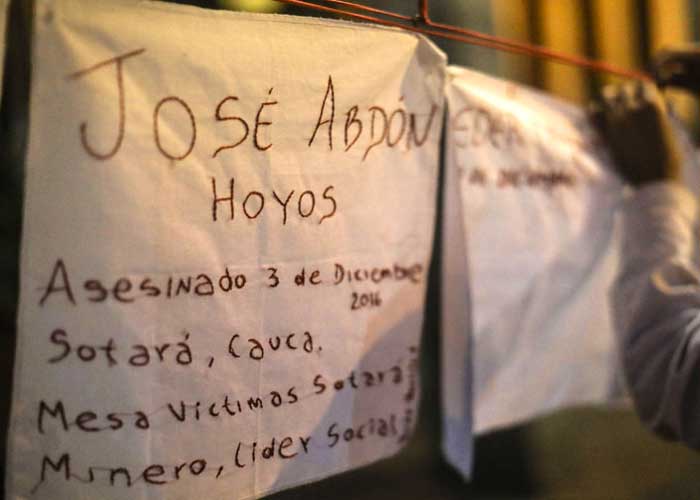 JOSÉ ABDÓN
HOYOS
Asesinado 3 de Diciembre
2016
Sotará, Cauca.
Mesa Víctimas Sotará
Minero, Líder Social